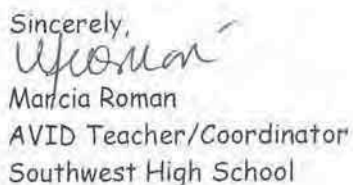 Sincerely,
Marcia Roman
AVID Teacher/Coordinator
Southwest High School